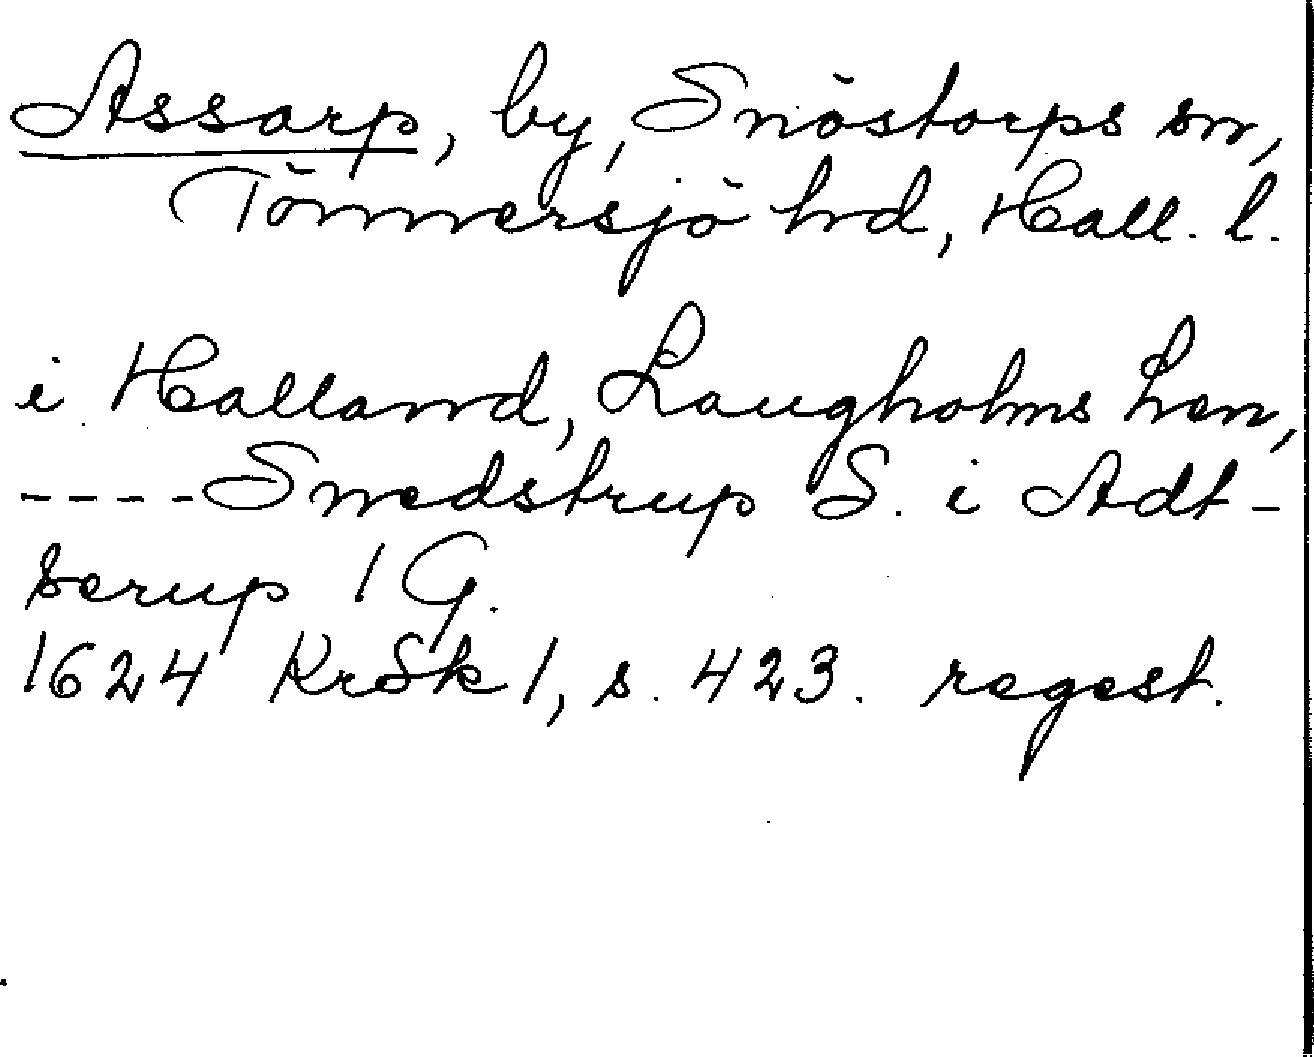 Assarp, by, Snöstorps sn,
Tönnersjö hd, Hall. l.
i Halland, Laugholms Len,
----Snedstrup S. i Adt-
serup 1 G.
1624 KrSk 1, s. 423. regest.